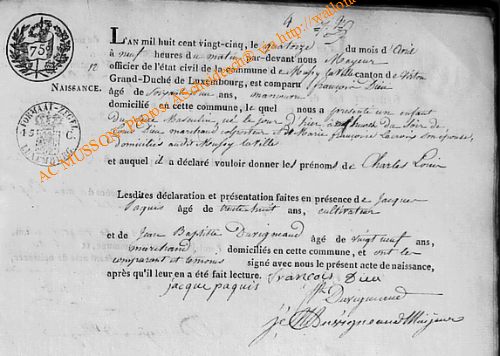 75
NAISSANCE.
FORMAAT-ZEGEL
LUXEMBURG
L'AN mil huit cent vingt-cinq, le quatorze du mois d'Avril
à neuf heures du matin par-devant nous Mayeur
officier de l'état civil de la commune de Mussy la ville canton de Virton
Grand-Duché de Luxembourg, est comparu françois Dieu
âgé de ans, manœuvre
domicilié en cette commune, le quel nous a présenté un enfant
du sexe Masculin, né le jour d'hier heures du Soir de
Dieu marchand colporteur et de Marie françoise Lacroix son épouse,
domiciliés audit Mussy la ville
et auquel il a déclaré vouloir donner les prénoms de Charles Louis
Lesdites déclaration et présentation faites en présence de Jacques
Paquis âgé de trente huit ans, cultivateur
et de Jean Baptiste Duvigneaud âgé de vingt neuf ans,
marchand domiciliés en cette commune, et ont le
comparant et temoins signé avec nous le présent acte de naissance,
après qu'il leur en a été fait lecture. françois Dieu
jacque paquis
Duvigneaud
Duvigneaud Maijeur
AC MUSSON Photos A©